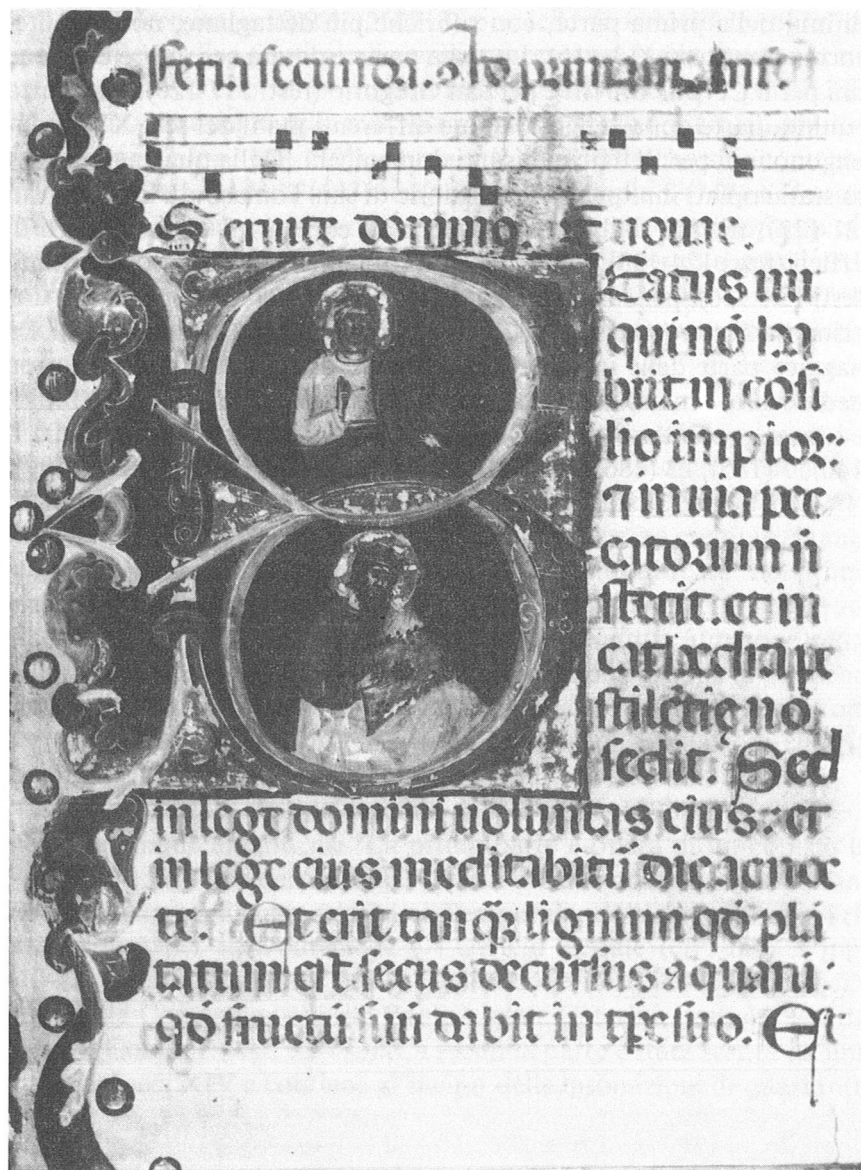 feria secunda. Ad primam. Ant
Seruite domino. Euouae.
Beatus uir
qui nō ha
buit in cōsi
lio impior
⁊ in uia pec
catorum n̄
stetit. et in
cathedra pe
stilētię nō
sedit. Sed
in lege domini uoluntas eius: et
in lege eius meditabitur̄ die ac noc
te. Et erit tanq̄ꝫ lignum qđ plā
tatum est secus decursus aquarū:
qđ fructū suū dabit in tp̄e suo. Et